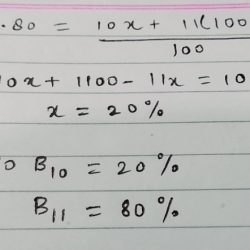 .80 = 10x + 11(100
100
10x + 1100 - 11x = 10
x = 20%
O B10 = 20%
B11 = 80%